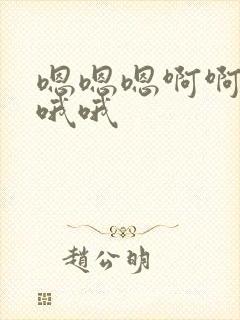 嗯嗯嗯啊啊
哦哦
趙公明